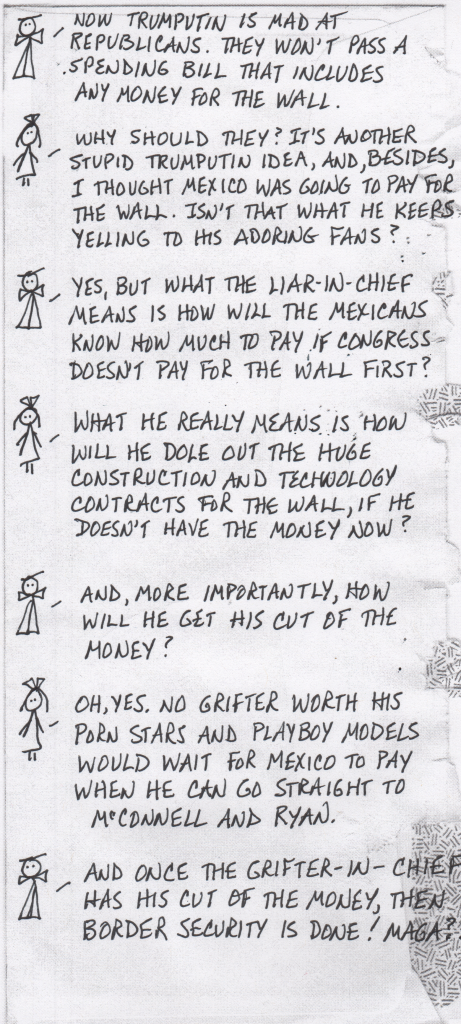 NOW TRUMPUTIN IS MAD AT
REPUBLICANS. THEY WON'T PASS A
SPENDING BILL THAT INCLUDES
ANY MONEY FOR THE WALL.
WHY SHOULD THEY? IT'S ANOTHER
STUPID TRUMPUTIN IDEA, AND, BESIDES,
I THOUGHT MEXICO WAS GOING TO PAY FOR
THE WALL. ISN'T THAT WHAT HE KEEPS
YELLING TO HIS ADORING FANS?
YES, BUT WHAT THE LIAR-IN-CHIEF
MEANS IS HOW WILL THE MEXICANS
KNOW HOW MUCH TO PAY IF CONGRESS
DOESN'T PAY FOR THE WALL FIRST?
WHAT HE REALLY MEANS IS HOW
WILL HE DOLE OUT THE HUGE
CONSTRUCTION AND TECHNOLOGY
CONTRACTS FOR THE WALL, IF HE
DOESN'T HAVE THE MONEY NOW?
AND, MORE IMPORTANTLY, HOW
WILL HE GET HIS CUT OF THE
MONEY?
OH, YES. NO GRIFTER WORTH HIS
PORN STARS AND PLAYBOY MODELS
WOULD WAIT FOR MEXICO TO PAY
WHEN HE CAN GO STRAIGHT TO
McCONNELL AND RYAN.
AND ONCE THE GRIFTER-IN-CHIEF
HAS HIS CUT OF THE MONEY, THEN
BORDER SECURITY IS DONE! MAGA?